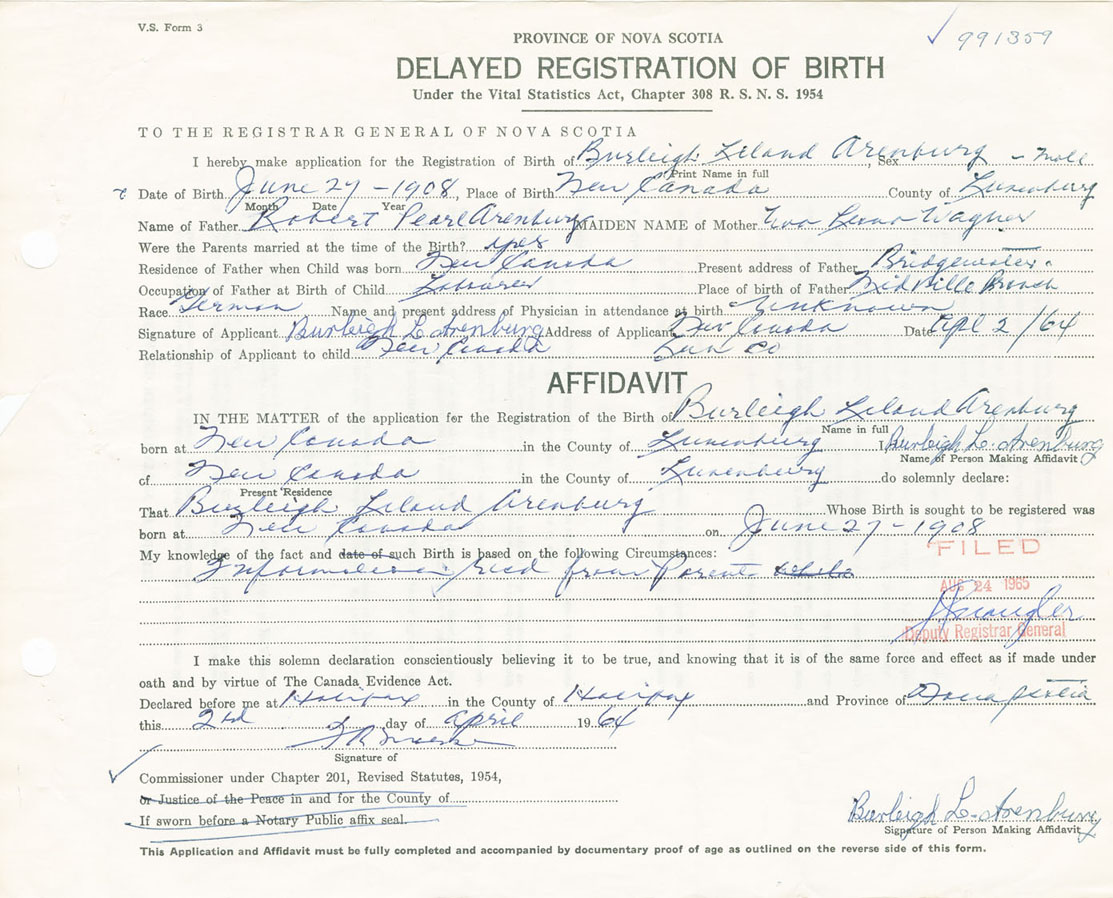 V.S. Form 3
991359
PROVINCE OF NOVA SCOTIA
DELAYED REGISTRATION OF BIRTH
Under the Vital Statistics Act, Chapter 308 R. S. N. S. 1954
TO THE REGISTRAR GENERAL OF NOVA SCOTIA
I hereby make application for the Registration of Birth of Burleigh Leland Arenburg Sex - Male
Print Name in full
Date of Birth June 27 - 1908, Place of Birth New Canada County of Lunenburg
Month Date Year
Name of Father Robert Pearl Arenburg MAIDEN NAME of Mother Wagner
Were the Parents married at the time of the Birth? yes
Residence of Father when Child was born New Canada Present address of Father Bridgewater
Occupation of Father at Birth of Child Labourer Place of birth of Father Midville Branch
Race German Name and present address of Physician in attendance at birth Unknown
Signature of Applicant Burleigh L. Arenburg Address of Applicant New Canada Date Apl 2/64
Relationship of Applicant to child New Canada Lun Co
AFFIDAVIT
IN THE MATTER of the application for the Registration of the Birth of Burleigh Leland Arenburg
Name in full
born at New Canada in the County of Lunenburg I Burleigh L. Arenburg
Name of Person Making Affidavit
of New Canada in the County of Lunenburg do solemnly declare:
Present Residence
That Burleigh Leland Arenburg Whose Birth is sought to be registered was
born at New Canada on June 27 - 1908
My knowledge of the fact and date of such Birth is based on the following Circumstances:
FILED
Information from Parents
AUG 24 1965
Deputy Registrar General
I make this solemn declaration conscientiously believing it to be true, and knowing that it is of the same force and effect as if made under
oath and by virtue of The Canada Evidence Act.
Declared before me at Halifax in the County of Halifax and Province of Nova Scotia
this 2nd day of April 1964
Signature of
Commissioner under Chapter 201, Revised Statutes, 1954,
or Justice of the Peace in and for the County of
If sworn before a Notary Public affix seal.
Burleigh L. Arenburg
Signature of Person Making Affidavit
This Application and Affidavit must be fully completed and accompanied by documentary proof of age as outlined on the reverse side of this form.